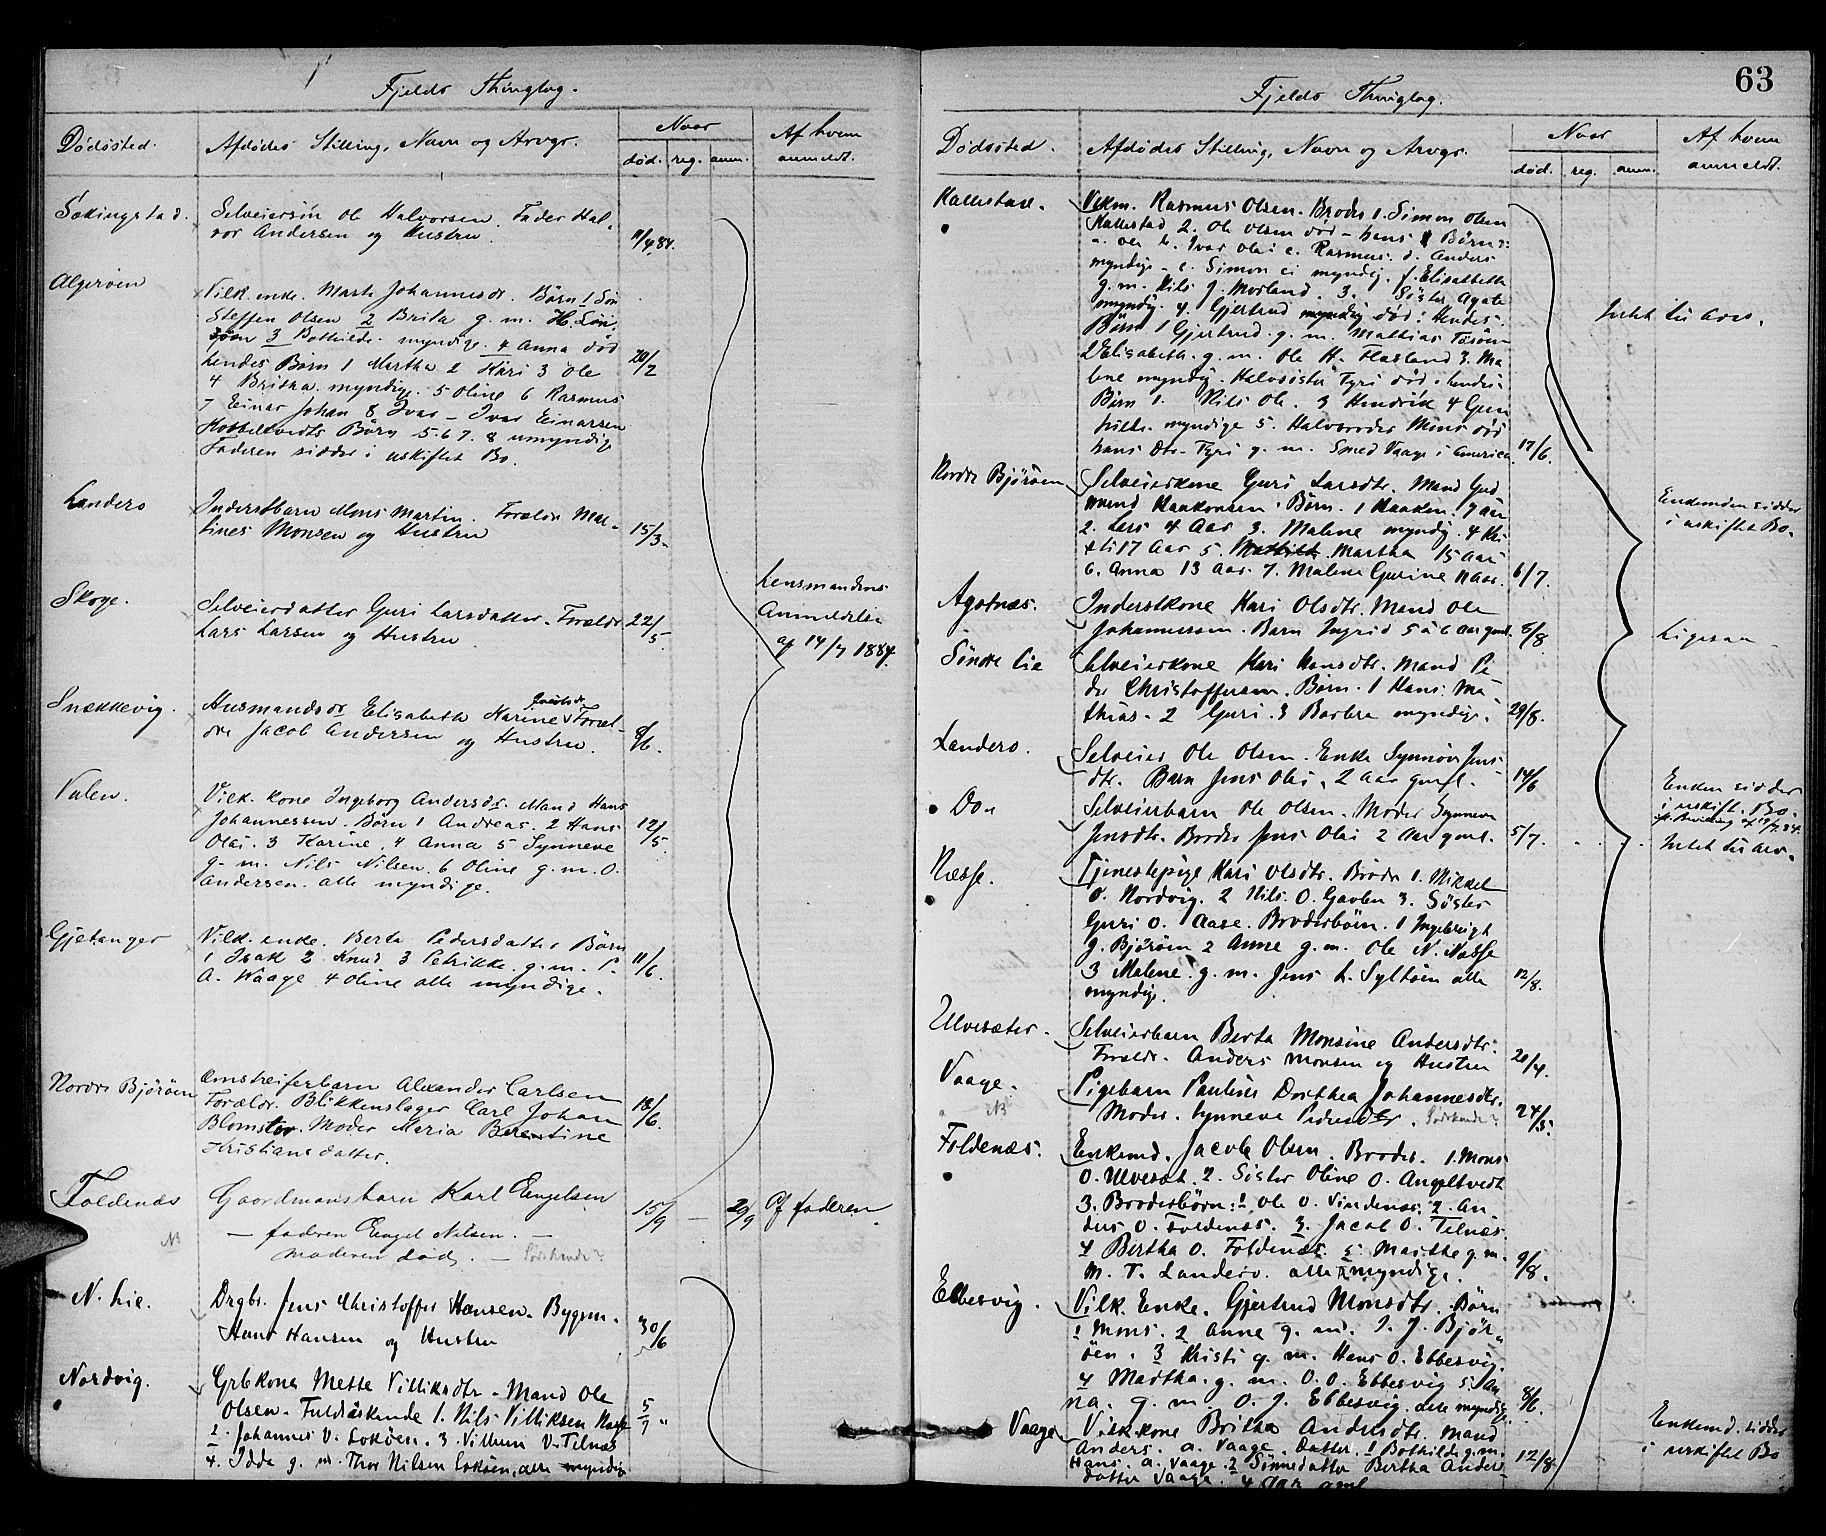 Fjelds Thinglag.
Dødssted.
Afdødes Stilling, Navn og Arvgr.
Naar
død. reg. anm.
Af hvem
anmeldt.
Selveiersøn Ole Halvorsen. Fader Hal-
vor Andersen og Hustru.
11/4 84.
Algerøen
Vilk. enke. Marte Johannesdr. Børn 1 Søn
Steffen Olsen 2 Brita g. m. H.
3 Bothilde myndige. 4 Anna død
hendes Børn 1 Martha 2 Kari 3 Ole
4 Britha. myndige. 5 Oline 6 Rasmus
7 Einar Johan 8 Ivar - Ivar Einarsen
Kobbeltvedts Børn 5. 6 7. 8 umyndige
Faderen sidder i uskiftet Bo.
20/2
Landero
Inderstbarn Mons Martin. Forældr Mar-
tines Monsen og Hustru
15/3.
Skoge.
Selveierdatter Guri Larsdatter. Forældr
Lars Larsen og Hustru.
22/5.
Lensmandens
Anmeldelse
af 14/7 1884.
Snekkevig.
Husmandsdr Elisabeth Karine Foræl-
dre Jacob Andersen og Hustru.
8/6.
Valen.
Vilk. kone Ingeborg Andersdr. Mand Hans
Johannessen. Børn 1 Andreas. 2 Hans
Olai. 3 Karine. 4 Anna 5 Synneve
g. m. Nils Nilsen. 6 Oline g. m. O.
Andersen. alle myndige.
12/5.
Gjetanger
Vilk. enke. Berta Pedersdatter Børn
1 Isak 2 Knud 3 Petrikke. g. m. P.
A. Waage 4 Oline alle myndige.
11/6.
Nordre Bjørøen
Omstreiferbarn Alexander Carlsen
Forældr. Blikkenslager Carl Johan
Blomster. Moder Maria Berentine
Kristiansdatter.
18/6.
Foldenæs
Gaardmansbarn Karl Engelsen
— faderen Engel Nilsen. —
moderen død. — Søskende?
15/9 — 29/9 Af faderen.
N. Lie.
Drgbr. Jens Christoffer Hansen. Bygsm.
Hans Hansen og Hustru
30/6
Nordvig.
Grbkone Mette Villiksdtr - Mand Ole
Olsen. Fuldsøskende 1. Nils Villiksen Næsse
2. Johannes V. Lokøen. 3. Villum V. Tilnæs
4. Idda g. m. Thor Nilsen Lokøen, alle myndige
5/7 "
63
Fjelds Thinglag.
Dødssted.
Afdødes Stilling, Navn og Arvgr.
Naar
død. reg. anm.
Af hvem
anmeldt.
Kallestad.
Vilkm. Rasmus Olsen. Broder 1. Simon Olsen
Kallestad 2. Ole Olsen død - hans Børn:
b. Ivar Olai c. Rasmus. d. Anders
myndige - e. Simon ei myndig. f. Elisabeth
g. m. Nils J. Morland. 3. Søster Agate
myndig. 4. Gjertrud død. Hendes
Børn 1 Gjertrud. g. m. Mathias
2 Elisabeth. g. m. Ole H. Hasland 3. Ma-
lene myndig. Halvsøster Tyri død.
Børn 1. Nils Ole. 3 Hendrik 4 Gun
hilde. myndige 5. Halvbroder død
hans Dtr. Tyri g. m. Smed Vaage i America
17/6.
Intet til Arv.
Nordre Bjørøen
Selveierkone Guri Larsdtr. Mand Gud
mund Haakonsen. Børn. 1 Haaken.
2. Lars 4 Aar 3. Malene myndig. 4 Kri
sti 17 Aar 5. Martha 15 Aar
6. Anna 13 Aar. 7. Malene Gurine 11 Aar.
6/7.
Enkemden sidder
i uskiftet Bo.
Agotnæs.
Inderstkone Kari Olsdtr. Mand Ole
Johannessen. Barn Ingrid 5 à 6 Aar gml.
8/8.
Ligesaa
Søndre Lie
Selveierkone Kari Hansdtr. Mand Pe-
der Christoffersen. Børn. 1 Hans Ma-
thias. 2 Guri. 3 Barbra myndige.
29/8.
Landero.
Selveier Ole Olsen. Enke Synnøve Jens
dtr. Barn Jens Olai. 2 Aar gml.
14/6
Enken sidder
i uskift. Bo.
Do
Selveierbarn Ole Olsen. Moder Synneve
Jensdtr. Broder Jens Olai 2 Aar gml.
5/7.
Intet til Arv.
Næsse.
Tjenestepige Kari Olsdtr. Brødr 1. Mikkel
O. Nordvig. 2 Nils. O. Gavlen 3. Søster
Guri O. Aase. Broderbørn. 1 Ingebreigt
g. Bjørøen 2 Anne g. m. Ole N. Næsse
3 Malene. g. m. Jens L. Syltøen alle
myndige.
12/8.
Ulvesæter.
Selveierbarn Berta Monsine Andersdtr.
Forældr. Anders Monsen og Hustru
20/4.
Vaage.
Pigebarn Pauline Dorthea Johannesdtr.
Moder. Synneve Pedersdtr. Søskende?
24/5.
Foldenæs.
Enkemd. Jacob Olsen. Broder. 1. Mons
O. Ulvesæt. 2. Søster Oline O. Angeltvedt
3. Broderbørn: 1 Ole O. Vindenæs. 2. An-
ders O. Foldenæs. 3. Jacob O. Tilnæs.
4 Bertha O. Foldenæs 5. Marthe g. m.
M. T. Landero. alle myndige.
9/8.
Ebbesvig.
Vilk. Enke. Gjertrud Monsdtr. Børn
1 Mons. 2 Anne g. m. I. J. Bjør-
øen. 3 Kristi g. m. Hans O. Ebbesvig.
4 Martha. g. m. O. O. Ebbesvig 5. An-
na. g. m. O. J. Ebbesvig. alle myndig
8/6.
Vaage
Vilk. kone Britha Andersdtr. Mand
Anders. A. Vaage. Datter. 1 Bothilde g. m.
Hans. A. Vaage. 2 Sønnedatter Bertha Anders-
datter Vaage. 4 Aar gml.
12/8.
Enkemd. sidder
i uskiftet Bo